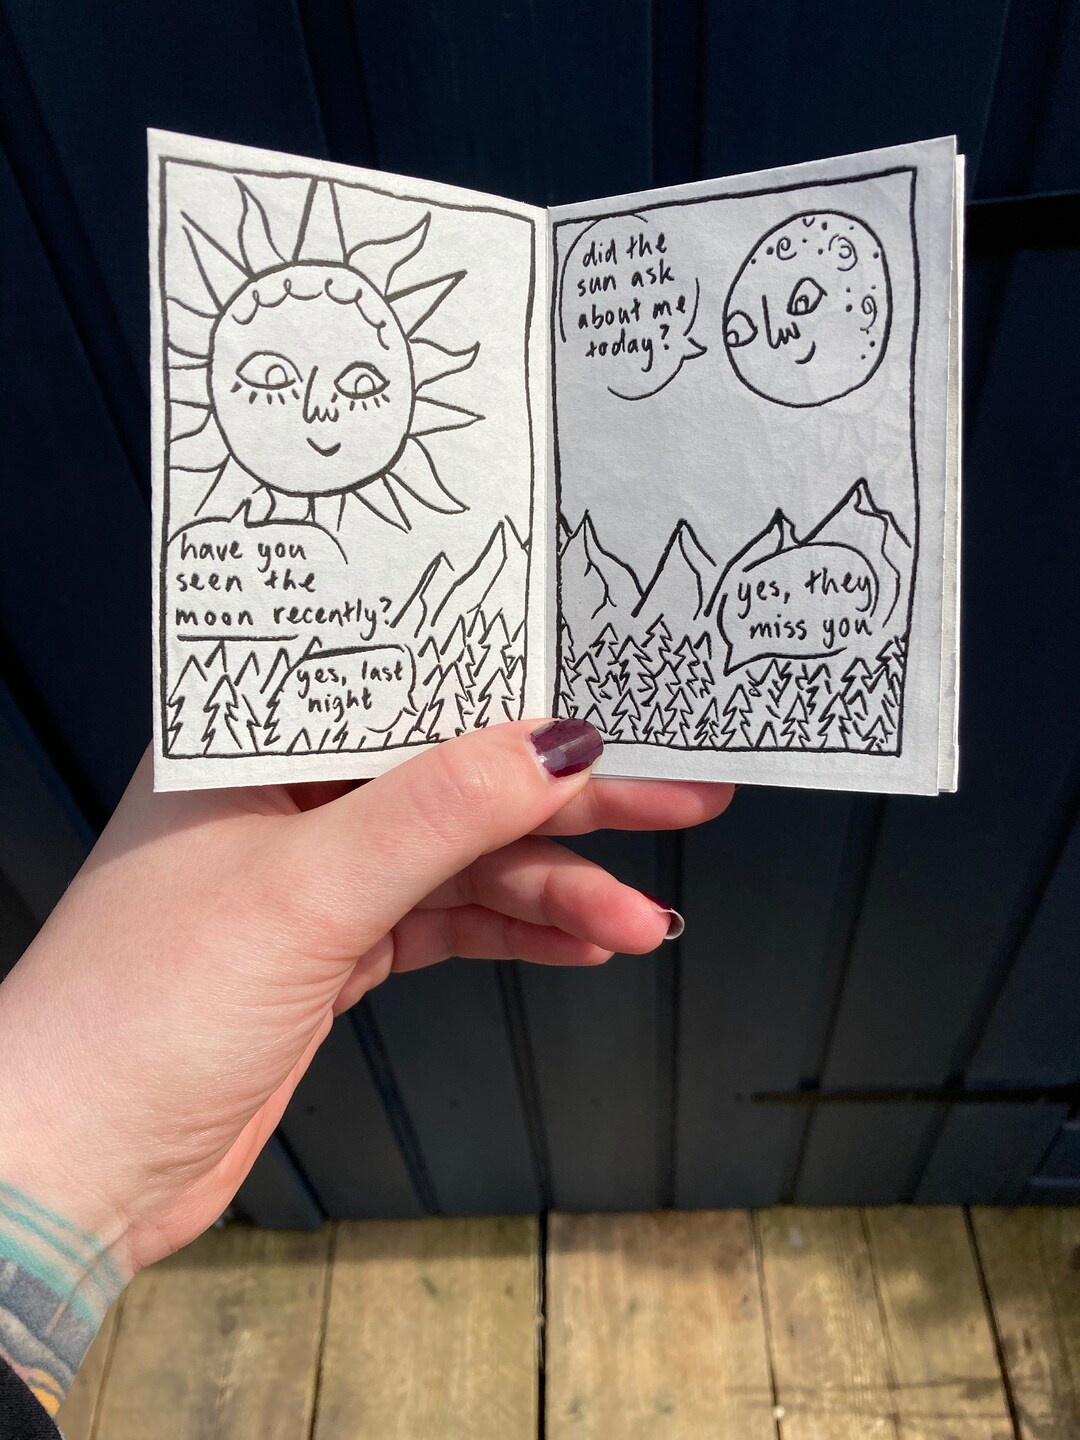 have you
seen the
moon recently?
yes, last
night
did the
sun ask
about me
today?
yes, they
miss you